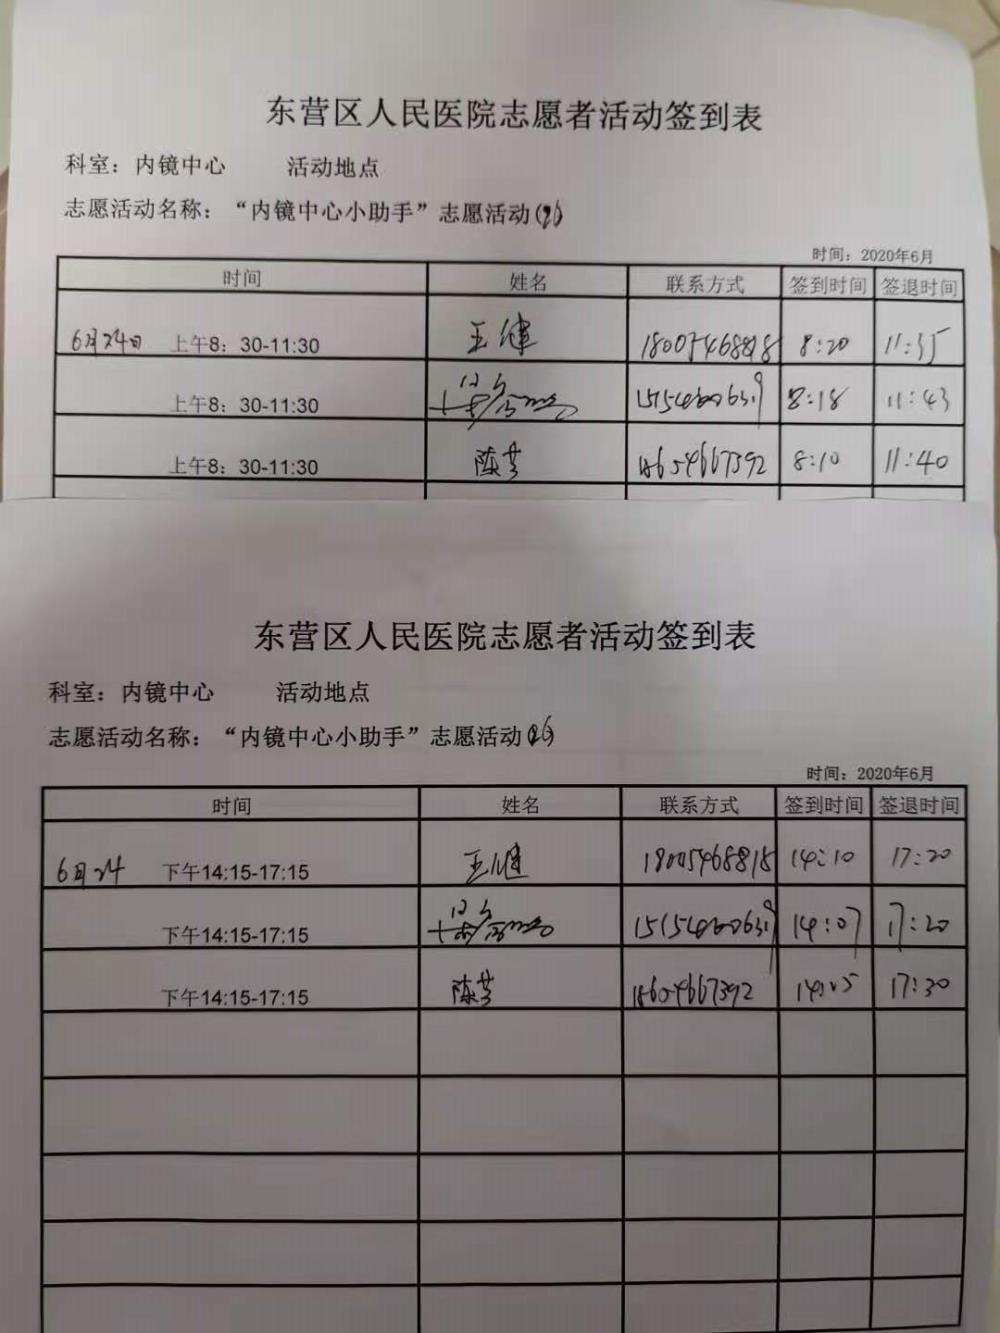 东营区人民医院志愿者活动签到表
科室：内镜中心 活动地点
志愿活动名称：“内镜中心小助手”志愿活动
时间：2020年6月
时间 姓名 联系方式 签到时间 签退时间
6月24日 上午8：30-11:30 王健 18005468818 8:20 11:35
上午8：30-11:30 8:18 11:43
上午8：30-11:30 陈芳 18654667392 8:10 11:40
东营区人民医院志愿者活动签到表
科室：内镜中心 活动地点
志愿活动名称：“内镜中心小助手”志愿活动
时间：2020年6月
时间 姓名 联系方式 签到时间 签退时间
6月24 下午14:15-17:15 王健 18005468818 14:10 17:20
下午14:15-17:15 14:07 17:20
下午14:15-17:15 陈芳 18654667392 14:05 17:30